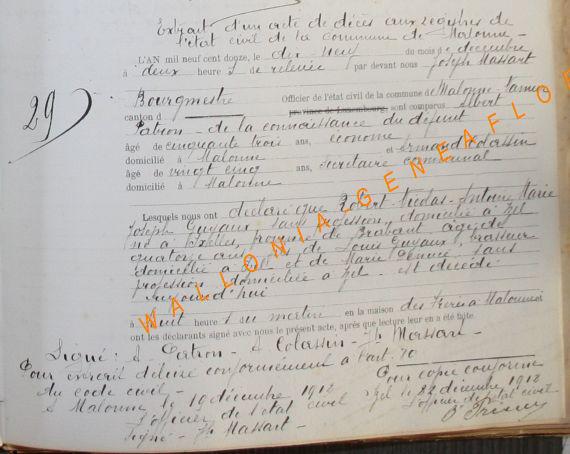 Extrait d'un acte de décès aux registres de
l'état civil de la commune de Malonne.
L'AN mil neuf cent douze, le dix-neuf du mois de décembre
à deux heures de relevée par devant nous Joseph Massart
29
Bourgmestre Officier de l'état civil de la commune de Malonne Namur
canton d province de Luxembourg, sont comparus Albert
Patron de la connaissance du défunt
âgé de cinquante trois ans, économe
domicilié à Malonne et Armand Colassin
âgé de vingt cinq ans, secrétaire communal
domicilié à Malonne
Lesquels nous ont déclaré que Robert Nicolas Antoine Marie
Joseph Guyaux, sans profession, domicilié à
né à Ixelles, province de Brabant, âgé de
quatorze ans, de Louis Guyaux, brasseur
domicilié à et de Marie sans
profession domiciliée à est décédé
aujourd'hui
à huit heures du matin en la maison des Frères à Malonne
ont les déclarants signé avec nous le présent acte, après que lecture leur en a été faite.
Signé: A. Patron - A. Colassin - Jh Massart -
Pour extrait délivré conformément à l'art. 70
du code civil - Pour copie conforme
A Malonne, le 19 décembre 1912 le 22 décembre 1912
L'officier de l'état civil L'officier de l'état civil
Signé - Jh Massart -
WALLONIA-GENEAFLO